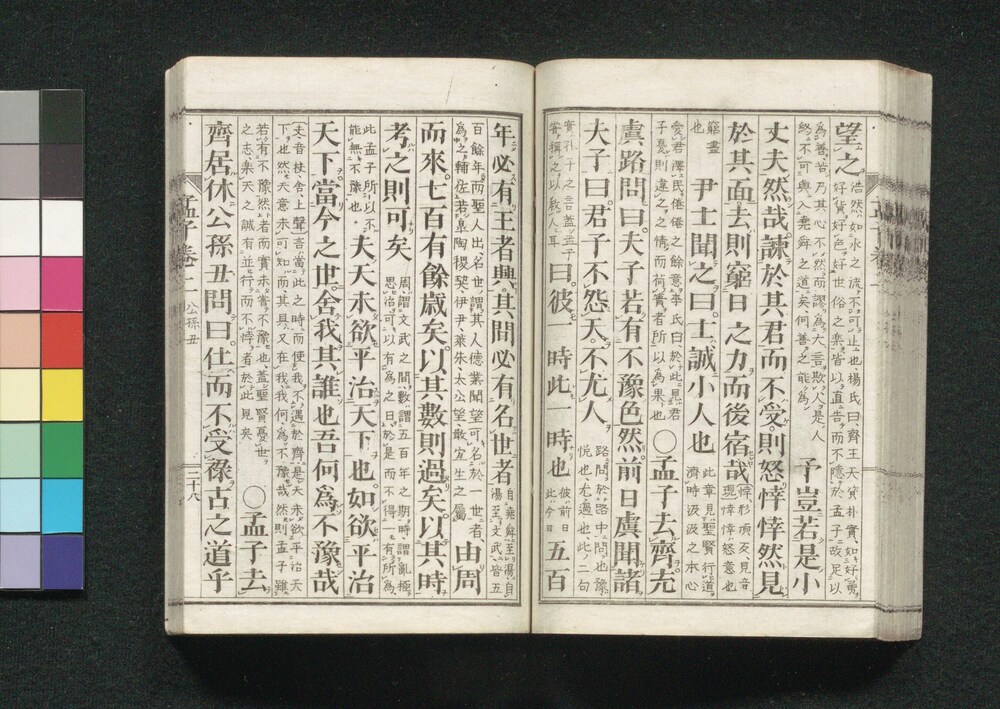 望之浩然如水之流不可止也楊氏曰齊王天資朴實如好勇
好貨好色好世俗之樂皆以直告而不隱於孟子故足以
為善若乃其心不然而謬為大言欺人是人
終不可與入堯舜之道矣何善之能為予豈若是小
丈夫然哉諫於其君而不受則怒悻悻然見
於其面去則窮日之力而後宿哉悻形頂反見音
現悻悻怒意也
窮盡
也尹士聞之曰士誠小人也此章見聖賢行道
濟時汲汲之本心
愛君澤民惓惓之餘意李氏曰於此見君
子憂則違之之情而荷蕢者所以為果也○孟子去齊充
虞路問曰夫子若有不豫色然前日虞聞諸
夫子曰君子不怨天不尤人路問於路中問也豫
悅也尤過也此二句
實孔子之言蓋孟子
嘗稱之以教人耳曰彼一時此一時也彼前日
此今日五百
年必有王者興其間必有名世者自堯舜至湯自
湯至文武皆五
百餘年而聖人出名世謂其人德業聞望可名於一世者
為之輔佐若皋陶稷契伊尹萊朱太公望散宜生之屬由周
而來七百有餘歲矣以其數則過矣以其時
考之則可矣周謂文武之間數謂五百年之期時謂亂極
思治可以有為之日於是而不得一有所為
此孟子所以不
能無不豫也夫天未欲平治天下也如欲平治
天下當今之世舍我其誰也吾何為不豫哉
夫音扶舍上聲言當此之時而使我不遇於齊是天未欲平治天
下也然天意未可知而其具又在我我何為不豫哉然則孟子雖
若有不豫然者而實未嘗不豫也蓋聖賢憂世
之志樂天之誠有並行而不悖者於此見矣○孟子去
齊居休公孫丑問曰仕而不受祿古之道乎
孟子卷二 公孫丑 三十八